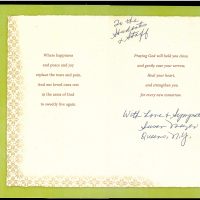 To the
& Staff
Where happiness
and peace and joy
replace the tears and pain,
And we loved ones rest
in the arms of God
to sweetly live again.
Praying God will hold you close
and gently ease your sorrow,
Heal your heart,
and strengthen you
for every new tomorrow.
With Love & Sympathy
Susan
Queens, N.Y.